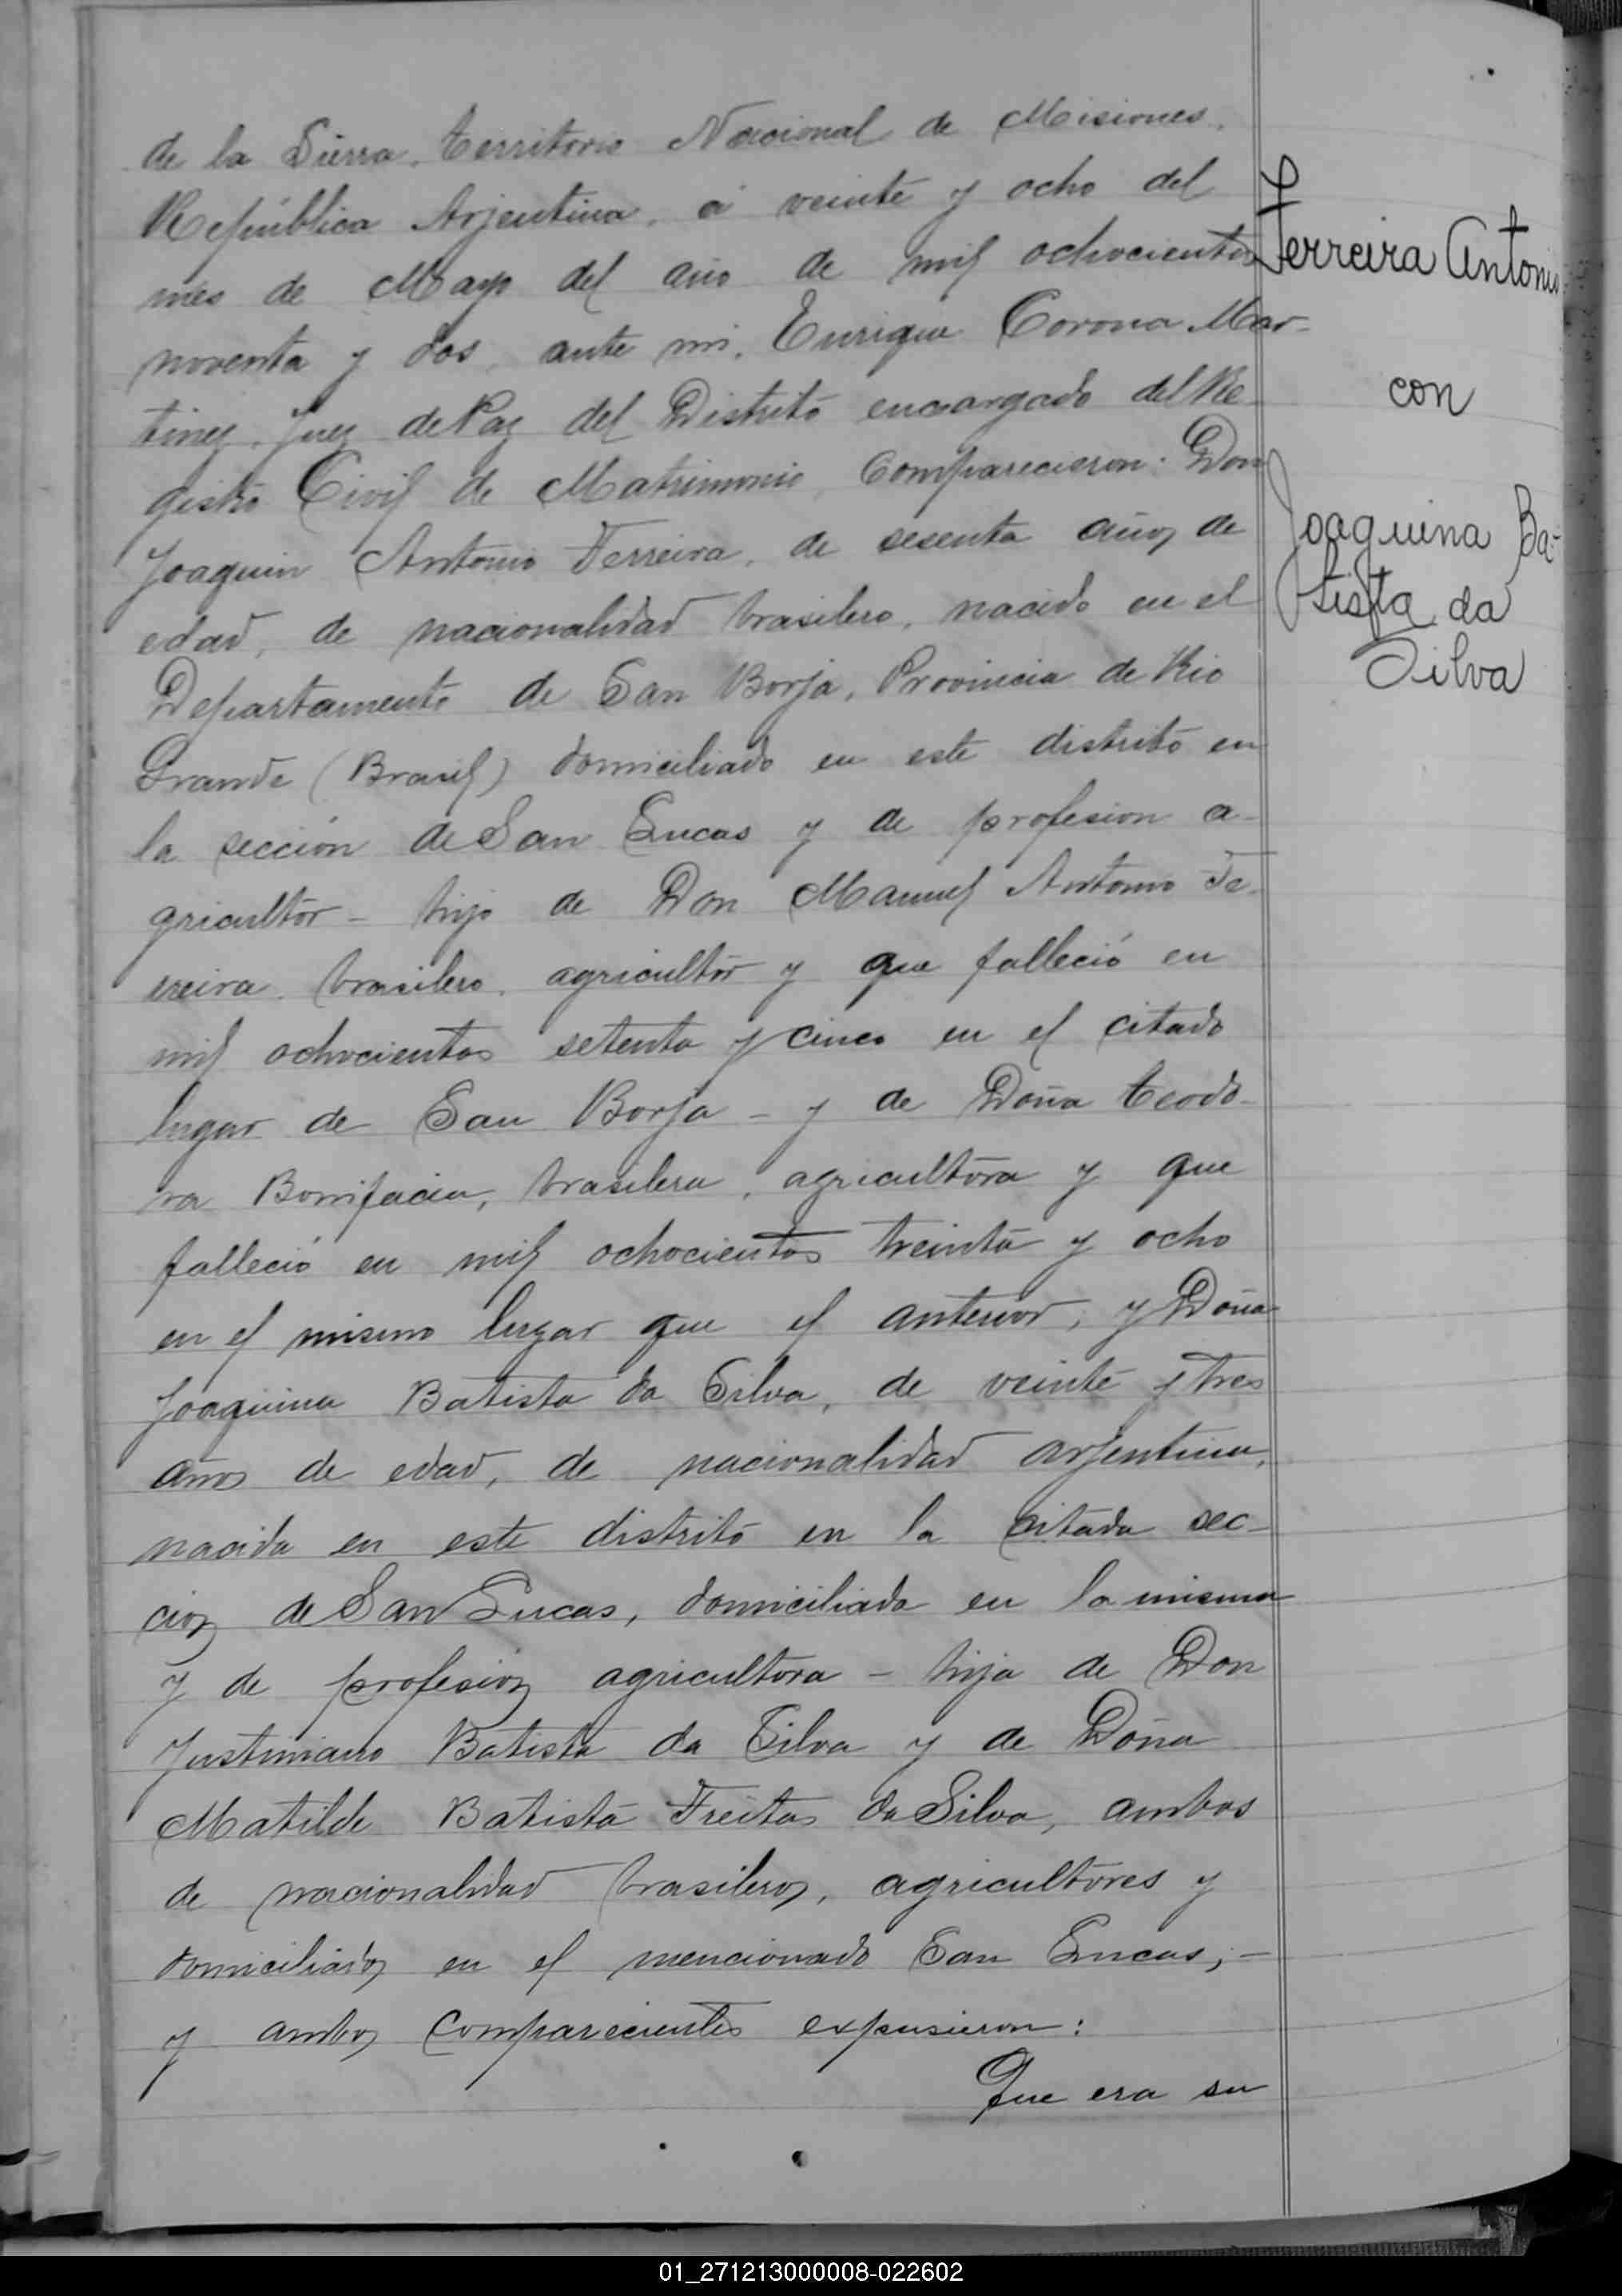 de la Sierra, territorio Nacional de Misiones,
República Arjentina, á veinte y ocho del
mes de Mayo del año de mil ochocientos
noventa y dos, ante mi, Enrique Corona Mar-
tinez, Juez de Paz del Distrito encargado del Re-
gistro Civil de Matrimonio, Comparecieron: Don
Joaquin Antonio Ferreira, de sesenta años de
edad, de nacionalidad brasilero, nacido en el
Departamento de San Borja, Provincia de Rio
Grande (Brasil) domiciliado en este distrito en
la sección de San Lucas y de profesion a-
gricultor - hijo de Don Manuel Antonio Fe-
rreira, brasilero, agricultor y que falleció en
mil ochocientos setenta y cinco en el citado
lugar de San Borja - y de Doña Teodo-
ra Bonifacia, brasilera, agricultora y que
falleció en mil ochocientos treinta y ocho
en el mismo lugar que el anterior; y Doña
Joaquina Batista da Silva, de veinte y tres
años de edad, de nacionalidad arjentina,
nacida en este distrito en la citada sec-
cion de San Lucas, domiciliada en la misma
y de profesión agricultora - hija de Don
Justiniano Batista da Silva y de Doña
Matilde Batista Freitas da Silva, ambos
de nacionalidad brasileros, agricultores y
domiciliados en el mencionado San Lucas; -
y ambos comparecientes expusieron:
Que era su
Ferreira Antonio
con
Joaquina Ba-
tista da
Silva
01_271213000008-022602